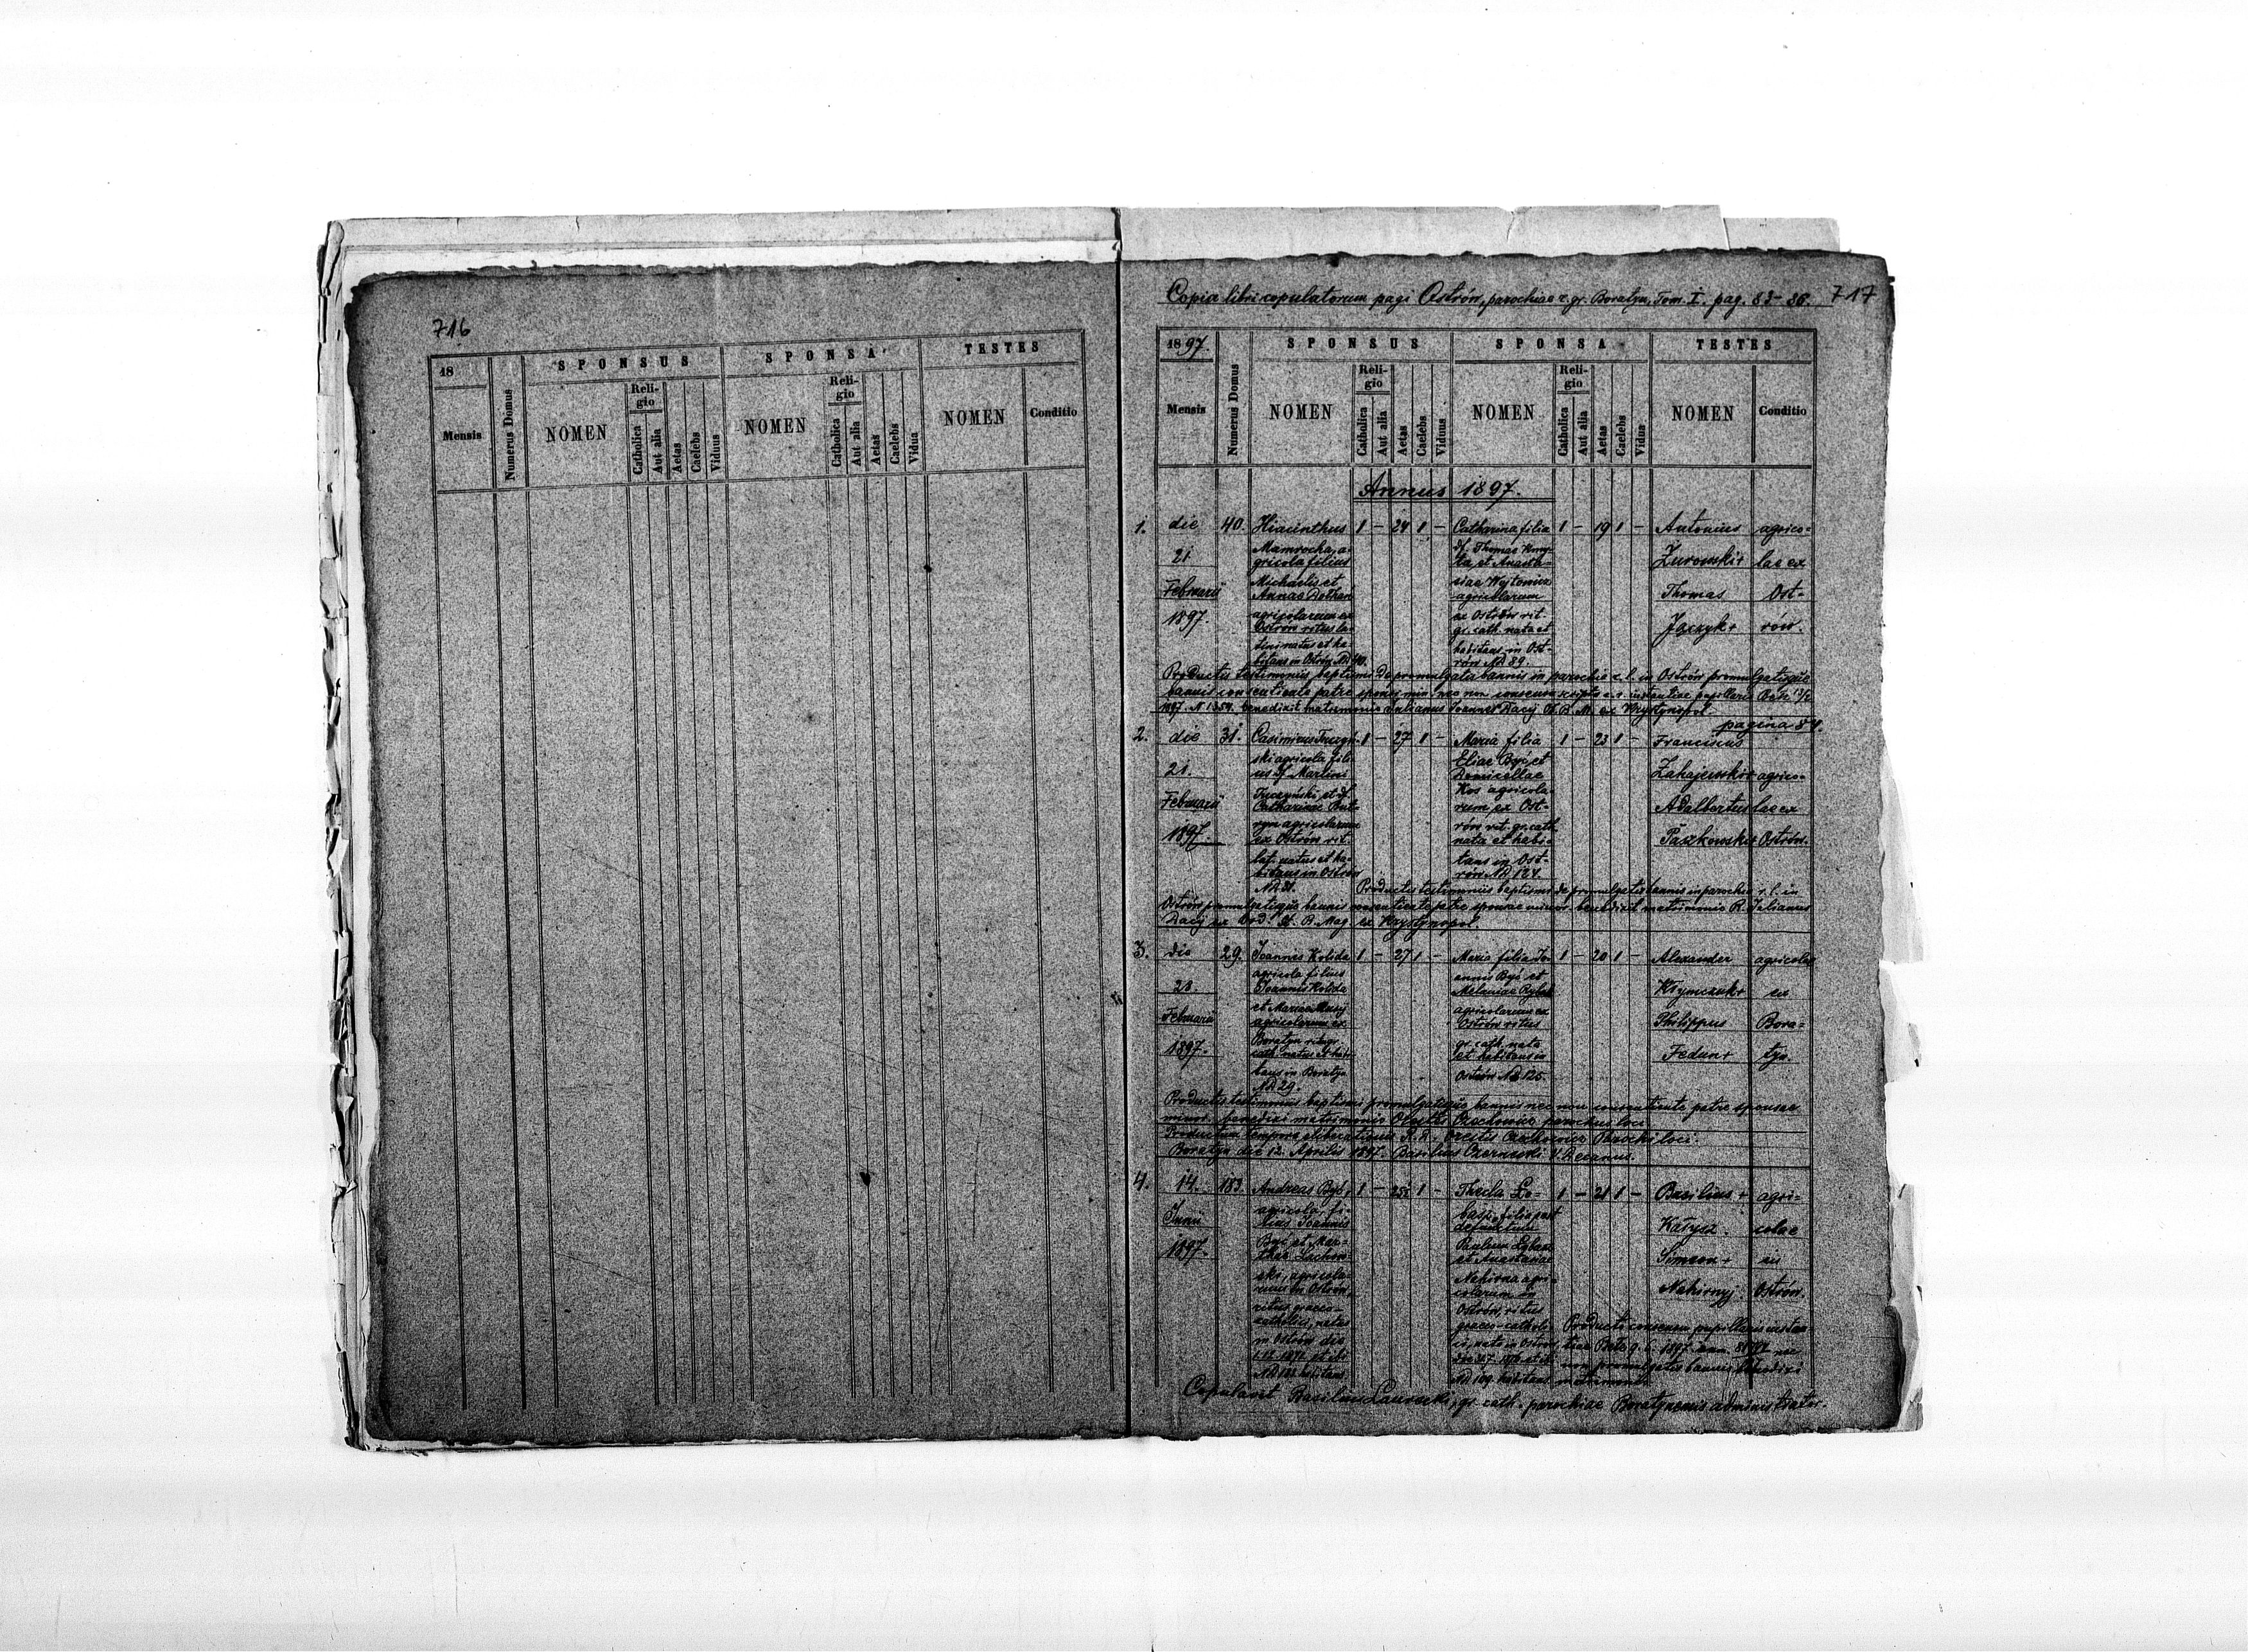 716
18
Mensis
Numerus Domus
SPONSUS
NOMEN
Reli-
gio
Catholica
Aut alia
Aetas
Caelebs
Viduus
SPONSA
NOMEN
Reli-
gio
Catholica
Aut alia
Aetas
Caelebs
Vidua
TESTES
NOMEN
Conditio
Copia libri copulatorum pagi Ostrów, parochiae r. gr. Boratyn, Tom. I. pag. 83-86. 717
1897.
Mensis
Numerus Domus
SPONSUS
NOMEN
Reli-
gio
Catholica
Aut alia
Aetas
Caelebs
Viduus
SPONSA
NOMEN
Reli-
gio
Catholica
Aut alia
Aetas
Caelebs
Vidua
TESTES
NOMEN
Conditio
Annus 1897.
1.
die
21
Februarii
1897.
40.
Hiacinthus
Mamrocha, a-
gricola filius
Michaelis et
Annae
agricolarum ex
Ostrów ritus la-
tini natus et ha-
bitans in Ostrów ND 40.
1 - 24 1 -
Catharina filia
Thomas
et Anasta-
siae Wojtowicz
agricolarum
ex Ostrów rit.
gr. cath. nata et
habitans in Ost-
rów ND 89.
1 - 19 1 -
Antonius
Żurowski +
Thomas
Jaczyk +
agrico-
lae ex
Ost-
rów.
Productis testimoniis baptismi de promulgatis bannis in parochia r. l. in Ostrów promulgatisque
bannis consentiente patre sponsi min. nec non consensu scripto instantiae pupillaris
1897. N 1354. benedixit matrimonio Julianus Joannes Dacij O. B. M. ex Krystynopol.
pagina 84.
2.
die
21.
Februarii
1897.
31.
Casimirus
ski agricola fili-
us Martini
et
Catharinae
agricolarum
ex Ostrów rit.
lat. natus et ha-
bitans in Ostrów
ND 31.
1 - 27 1 -
Maria filia
Eliae Być et
Domicellae
Kos agricola-
rum ex Ost-
rów rit. gr. cath.
nata et habi-
tans in Ost-
rów ND 124.
1 - 23 1 -
Franciscus
Zahajewski +
Adalbertus
Paszkowski +
agrico-
lae ex
Ostrów.
Productis testimoniis baptismi de promulgatis bannis in parochia r. l. in
Ostrów promulgatisque bannis consentiente patre sponsae minor. benedixit matrimonio R. Julianus
Dacij ex Ord. St. B. Mag. ex Krystynopol.
3.
die
28
Februarii
1897.
29.
Joannes Kolida
agricola filius
Joannis Kolida
et Mariae
agricolarum ex
Boratyn rit. gr.
cath. natus et habi-
tans in Boratyn
ND 29.
1 - 27 1 -
Maria filia Jo-
annis Być et
Melaniae
agricolarum ex
Ostrów ritus
gr. cath. nata
et habitans in
Ostrów ND 125.
1 - 20 1 -
Alexander
Krymczuk +
Philippus
Fedun +
agricolae
ex
Bora-
tyn.
Productis testimoniis baptismi promulgatisque bannis nec non consentiente patre sponsae
minor. benedixi matrimonio parochus loci
Productum tempore R. R. Parochi loci.
Boratyn die 12. Aprilis 1897. Basilius Czernecki V. Decanus.
4.
14.
Junii
1897.
183.
Andreas Być,
agricola, fi-
lius Joannis
Być et Mar-
thae
ski, agricola-
rum in Ostrów,
ritus graeco-
catholici, natus
in Ostrów die
et ibi
habitans
1 - 25 1 -
Thecla
filia post
defunctum
et Anastasia
Nahirna agri-
colarum in
Ostrów, ritus
graeco-catholi-
ci, nata in Ostrów
et ibi
ND 169. habitans
1 - 21 1 -
Basilius +
Kałysz.
Simeon +
Nahirnyj
agri-
colae
in
Ostrów.
Producti consensu pupillaris instan-
tiae 1897. num. nec
non promulgatis bannis benedixi
matrimonio
Copulavit Basilius Laurecki, gr. cath. parochiae Boratynensis administrator.